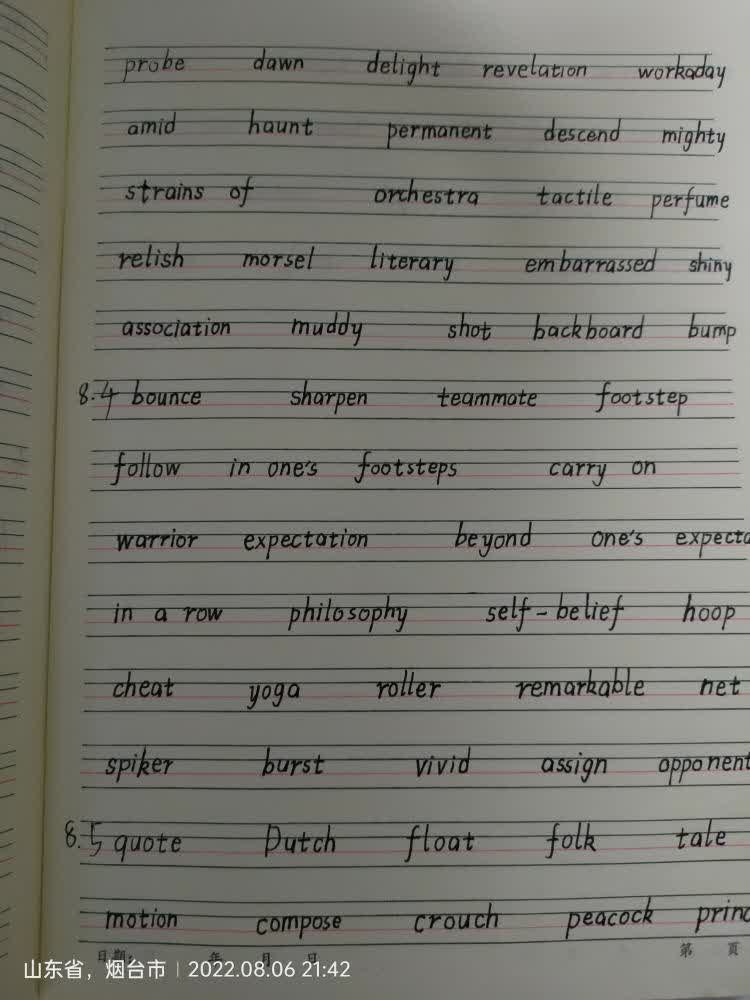 probe dawn delight revelation workaday
amid haunt permanent descend mighty
strains of orchestra tactile perfume
relish morsel literary embarrassed shiny
association muddy shot backboard bump
8.4 bounce sharpen teammate footstep
follow in one's footsteps carry on
warrior expectation beyond one's expecta
in a row philosophy self-belief hoop
cheat yoga roller remarkable net
spiker burst vivid assign opponent
8.5 quote Dutch float folk tale
motion compose crouch peacock princ
日期: 年 月 日 第 页
山东省，烟台市 | 2022.08.06 21:42